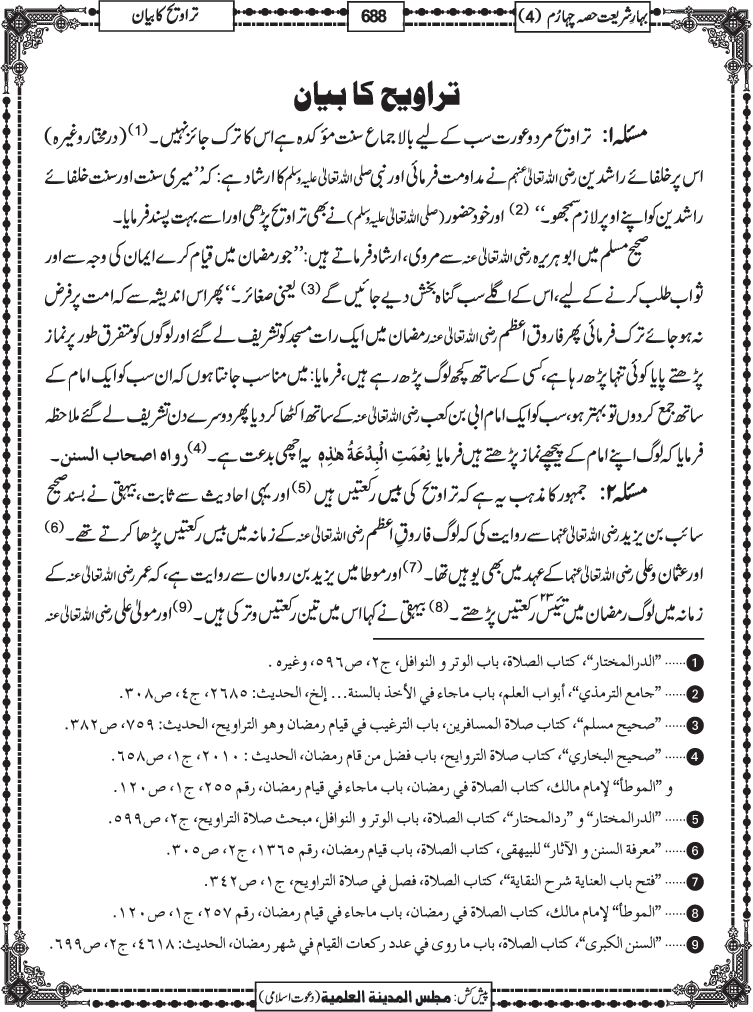 بہارِ شریعت حصہ چہارم (4)
688
تراویح کا بیان
تراویح کا بیان
مسئلہ ۱: تراویح مرد و عورت سب کے لیے بالاجماع سنت مؤکدہ ہے اس کا ترک جائز نہیں۔ (1) (درمختار وغیرہ)
اس پر خلفائے راشدین رضی اللہ تعالیٰ عنہم نے مداومت فرمائی اور نبی صلی اللہ تعالیٰ علیہ وسلم کا ارشاد ہے: کہ ’’میری سنت اور سنت خلفائے
راشدین کو اپنے اوپر لازم سمجھو۔‘‘ (2) اور خود حضور (صلی اللہ تعالیٰ علیہ وسلم) نے بھی تراویح پڑھی اور اسے بہت پسند فرمایا۔
صحیح مسلم میں ابوہریرہ رضی اللہ تعالیٰ عنہ سے مروی، ارشاد فرماتے ہیں: ’’جو رمضان میں قیام کرے ایمان کی وجہ سے اور
ثواب طلب کرنے کے لیے، اس کے اگلے سب گناہ بخش دیے جائیں گے (3) یعنی صغائر۔‘‘ پھر اس اندیشہ سے کہ امت پر فرض
نہ ہو جائے ترک فرمائی پھر فاروق اعظم رضی اللہ تعالیٰ عنہ رمضان میں ایک رات مسجد کو تشریف لے گئے اور لوگوں کو متفرق طور پر نماز
پڑھتے پایا کوئی تنہا پڑھ رہا ہے، کسی کے ساتھ کچھ لوگ پڑھ رہے ہیں، فرمایا: میں مناسب جانتا ہوں کہ ان سب کو ایک امام کے
ساتھ جمع کردوں تو بہتر ہو، سب کو ایک امام ابی بن کعب رضی اللہ تعالیٰ عنہ کے ساتھ اکٹھا کردیا پھر دوسرے دن تشریف لے گئے ملاحظہ
فرمایا کہ لوگ اپنے امام کے پیچھے نماز پڑھتے ہیں فرمایا نِعْمَتِ الْبِدْعَةُ هٰذِهٖ یہ اچھی بدعت ہے۔ (4) رواہ اصحاب السنن۔
مسئلہ ۲: جمہور کا مذہب یہ ہے کہ تراویح کی بیس رکعتیں ہیں (5) اور یہی احادیث سے ثابت، بیہقی نے بسند صحیح
سائب بن یزید رضی اللہ تعالیٰ عنہما سے روایت کی کہ لوگ فاروقِ اعظم رضی اللہ تعالیٰ عنہ کے زمانہ میں بیس رکعتیں پڑھا کرتے تھے۔ (6)
اور عثمان و علی رضی اللہ تعالیٰ عنہما کے عہد میں بھی یوہیں تھا۔ (7) اور موطا میں یزید بن رومان سے روایت ہے، کہ عمر رضی اللہ تعالیٰ عنہ کے
زمانہ میں لوگ رمضان میں تئیس ۲۳ رکعتیں پڑھتے۔ (8) بیہقی نے کہا اس میں تین رکعتیں وتر کی ہیں۔ (9) اور مولیٰ علی رضی اللہ تعالیٰ عنہ
1 ...... ”الدرالمختار“، كتاب الصلاة، باب الوتر و النوافل، ج۲، ص۵۹٦، وغیرہ .
2 ...... ”جامع الترمذي“، أبواب العلم، باب ماجاء في الأخذ بالسنة... إلخ، الحديث: ۲٦۸۵، ج٤، ص۳۰۸.
3 ...... ”صحيح مسلم“، كتاب صلاة المسافرين، باب الترغيب في قيام رمضان وهو التراويح، الحديث: ۷۵۹، ص۳۸۲.
4 ...... ”صحيح البخاري“، كتاب صلاة التروايح، باب فضل من قام رمضان، الحديث : ۲۰۱۰، ج۱، ص٦۵۸.
و ”الموطأ“ لإمام مالك، كتاب الصلاة في رمضان، باب ماجاء في قيام رمضان، رقم ۲۵۵، ج۱، ص۱۲۰.
5 ...... ”الدرالمختار“ و ”ردالمحتار“، كتاب الصلاة، باب الوتر و النوافل، مبحث صلاة التراويح، ج۲، ص۵۹۹.
6 ...... ”معرفة السنن و الآثار“ للبيهقى، كتاب الصلاة، باب قيام رمضان، رقم ۱۳٦۵، ج۲، ص۳۰۵.
7 ...... ”فتح باب العناية شرح النقاية“، كتاب الصلاة، فصل في صلاة التراويح، ج۱، ص۳٤۲.
8 ...... ”الموطأ“ لإمام مالك، كتاب الصلاة في رمضان، باب ماجاء في قيام رمضان، رقم ۲۵۷، ج۱، ص۱۲۰.
9 ...... ”السنن الكبرى“، كتاب الصلاة، باب ما روى في عدد ركعات القيام في شهر رمضان، الحديث: ٤٦۱۸، ج۲، ص٦۹۹.
پیش کش: مجلس المدينة العلمية (دعوت اسلامی)